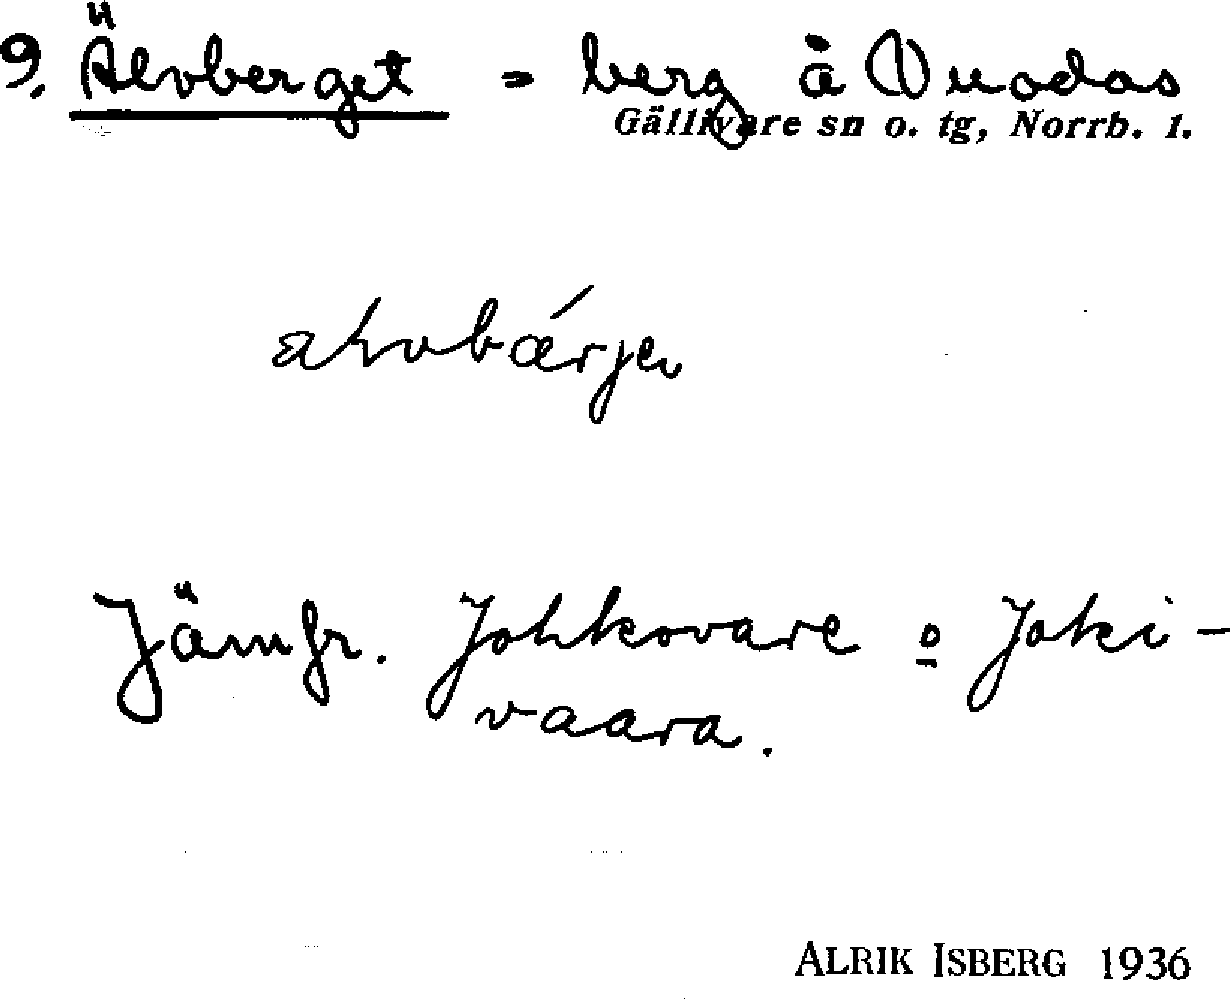 9. Älvberget = berg å Vuodas
Gällivare sn o. tg, Norrb. l.
Jämfr. Johkovare o Joki-
vaara.
ALRIK ISBERG 1936